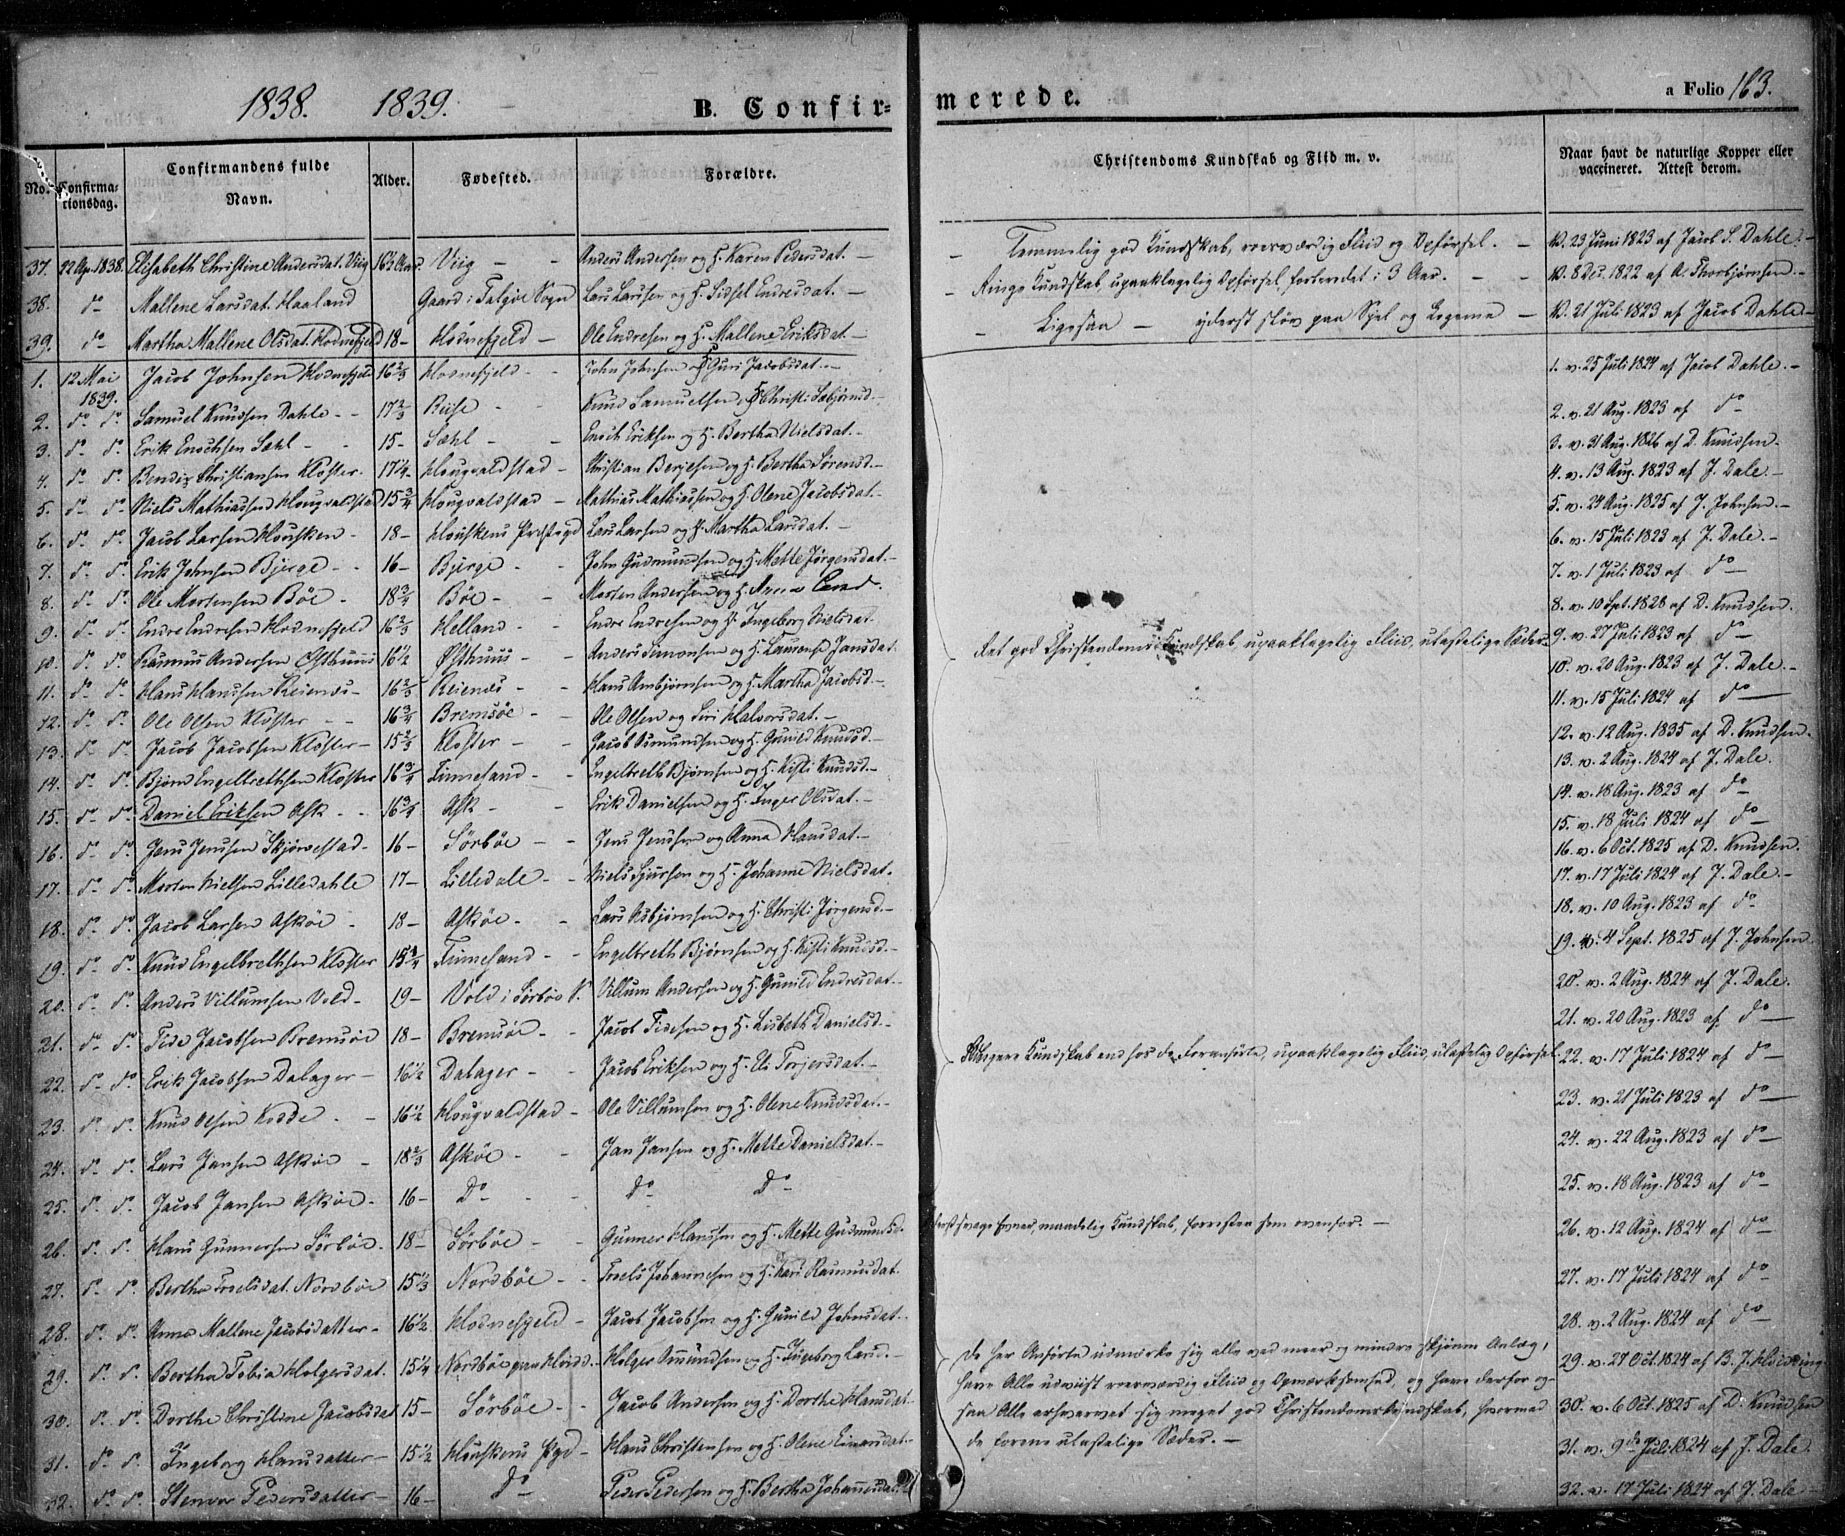 1838. 1839. B. Confirmerede. a Folio 163.
No. Confirmationsdag. Confirmandens fulde Navn. Alder. Fødested. Forældre. Christendoms Kundskab og Flid m. v. Naar havt de naturlige Kopper eller vaccineret. Attest derom.
37. 22 Ap. 1838. Elisabeth Christine Andersdat. Viig 16½ Aar Viig - Anders Andersen og H. Karen Pedersdat. - Temmelig god Kundskab, roesværdig Fliid og Opførsel. - V. 23 Juni 1823 af Jacob S. Dahle. -
38. do Mallene Larsdat. Haaland Gaard i Talgøe Sogn Lars Larsen og H. Sidsel Endresdat. - Ringe Kundskab, upaaklagelig Opførsel, forberedet i 3 Aar. - V. 8 Dec. 1822 af A. Thorbjørnsen. -
39. do Martha Mallene Olsdat. Hodnefjeld 18 - Hodnefjeld - Ole Endresen og H. Mallene Eriksdat. - Ligesaa - yderst sløv paa Sjel og Legeme - V. 21 Juli 1823 af Jacob Dahle -
1. 12 Mai 1839. Jacob Johnsen Hodnefjeld 16⅔ Hodnefjeld - John Johnsen og H. Guri Jacobsdat. - 1. v. 25 Juli 1824 af Jacob Dahle. -
2. do do Samuel Knudsen Dahle - 17⅔ Knud Samuelsen 2. v. 21 Aug. 1823 af do
3. do do Erik Enochsen Sæhl - 15 - Sæhl - Enoch Eriksen og H. Bertha Nielsdat. - 3. v. 31 Aug. 1826 af D. Knudsen.
4. do do Bendix Christiansen Kloster - 17¼ Hougvaldstad - Christian Berjesen og H. Bertha Sørensd. - 4. v. 13 Aug. 1823 af J. Dale. -
5. do do Niels Mathiassen Hougvaldstad 15¾ Hougvaldstad - Mathias Mathiassen og H. Olene Jacobsdat. - 5. v. 24 Aug. 1825 af J. Johnsen. -
6. do do Jacob Larsen Housken - 18 - Houskens Lars Larsen og H. Martha Larsdat. - 6. v. 15 Juli 1823 af J. Dale. -
7. do do Erik Johnsen Bjerge - 16 - Bjerge - John Gudmundsen og H. Mette Jørgensdat. - 7. v. 1 Juli 1823 af do
8. do do Ole Mortensen Bøe - 18¾ Bøe - Morten Andersen og H. Anna 8. v. 10 Sept. 1828 af D. Knudsen.
9. do do Endre Endresen Hodnefjeld 16⅔ Helland - Endre Endresen og H. Ingeborg Nielsdat. 9. v. 27 Juli 1823 af do
Ret god Christendoms Kundskab, upaaklagelig Fliid, ulastelige Sæder -
10. do do Rasmus Andersen Østhuus 16½ Østhuus - Anders Simonsen og H. Laurense Jansdat. 10. v. 20 Aug. 1823 af J. Dale. -
11. do do Hans Hansen Reienæs - 16⅔ Reienæs - Hans Asbjørnsen og H. Martha Jacobsd. - 11. v. 15 Juli 1824 af do
12. do do Ole Olsen Kloster - 16¾ Bremsøe - Ole Olsen og Siri Halvorsdat. - 12. v. 12 Aug. 1835 af D. Knudsen.
13. do do Jacob Jacobsen Kloster - 15⅔ Kloster - Jacob Osmundsen og H. Gunild Knudsd. - 13. v. 2 Aug. 1824 af J. Dale.
14. do do Bjørn Engelbrethsen Kloster 16¾ Finneland - Engelbreth Bjørnsen og H. Kisti Knudsd. - 14. v. 18 Aug. 1823 af do
15. do do Daniel Eriksen Ask - 16¾ Ask - Erik Danielsen og H. Inger Olsdat. - 15. v. 18 Juli 1824 af do
16. do do Jens Jensen Skjørvestad - 16 - Sørbøe - Jens Jensen og Anna Hansdat. - 16. v. 6 Oct. 1825 af D. Knudsen.
17. do do Morten Nielsen Lilledahle 17 - Lilledale - Niels Sjursen og H. Johanne Nielsdat. 17. v. 17 Juli 1824 af J. Dale. -
18. do do Jacob Larsen Askøe - 18 - Askøe - Lars Asbjørnsen og H. Christi Jørgensd. - 18. v. 10 Aug. 1823 af do
19. do do Knud Engelbrethsen Kloster 15¾ Finneland - Engelbreth Bjørnsen og H. Kisti Knudsd. - 19. v. 4 Sept. 1825 af J. Johnsen
20. do do Anders Villumsen Vold - 19 - Vold i Sørbøe S. Villum Andersen og H. Gunild Endresdat. - 20. v. 2 Aug. 1824 af J. Dale.
21. do do Tede Jacobsen Bremsøe 18 - Bremsøe - Jacob Tedesen og H. Lisbeth Danielsd. - 21. v. 20 Aug. 1823 af do
22. do do Erik Jacobsen Dalager - 16½ Dalager - Jacob Eriksen og H. Eli Torjersdat. - Ringere Kundskab end hos de Foranførte, upaaklagelig Fliid, ulastelig Opførsel. 22. v. 17 Juli 1824 af do
23. do do Knud Olsen Kodde - 16½ Hougvaldstad - Ole Villumsen og H. Olene Knudsdat. - 23. v. 21 Juli 1823 af do
24. do do Lars Jansen Askøe - 18⅔ Askøe - Jan Jansen og H. Mette Danielsdat. - 24. v. 22 Aug. 1823 af do
25. do do Jacob Jansen Askøe - 16 - Do - do Do 25. v. 18 Aug. 1823 af do
26. do do Hans Gunnersen Sørbøe - 18 - Sørbøe - Gunner Hansen og H. Mette Gudmundsd. svage Evner, maadelig Kundskab, forresten som ovenfor. - 26. v. 12 Aug. 1824 af do
27. do do Bertha Troelsdat. Nordbøe 15⅓ Nordbøe - Troels Johannesen og H. Kari Rasmusdat. 27. v. 17 Juli 1824 af do
28. do do Anna Mallene Jacobsdatter - 16½ Hodnefjeld - Jacob Jacobsen og H. Gunild Johnsdat. 28. v. 2 Aug. 1824 af do
29. do do Bertha Tobia Holgersdat. 15¼ Nordbøe Holger Osmundsen og H. Ingeborg Larsd. - De her Anførte udmærke sig alle ved meer og mindre skjønne Anlæg, 29. v. 27 Oct. 1824 af B. J. Hoidring
have Alle udviist roesværdig Fliid og Opmærksomhed, og have derfor og-
30. do do Dorthe Christine Jacobsdat. 15 - Sørbøe - Jacob Andersen og H. Dorthe Hansdat. saa Alle erhvervet sig meget god Christendomskundskab, hvormed 30. v. 6 Oct. 1825 af D. Knudsen
31. do do Ingeborg Hansdatter - 15½ Houskens Pgd - Hans Christensen og H. Olene Einersdat. de forene ulastelige Sæder. - 31. v. 9de Juli 1824 af J. Dale.
32. do do Stenvor Pedersdatter - 16 - Do Peder Pedersen og H. Bertha Johannesdat. 32. v. 17 Juli 1824 af J. Dale -